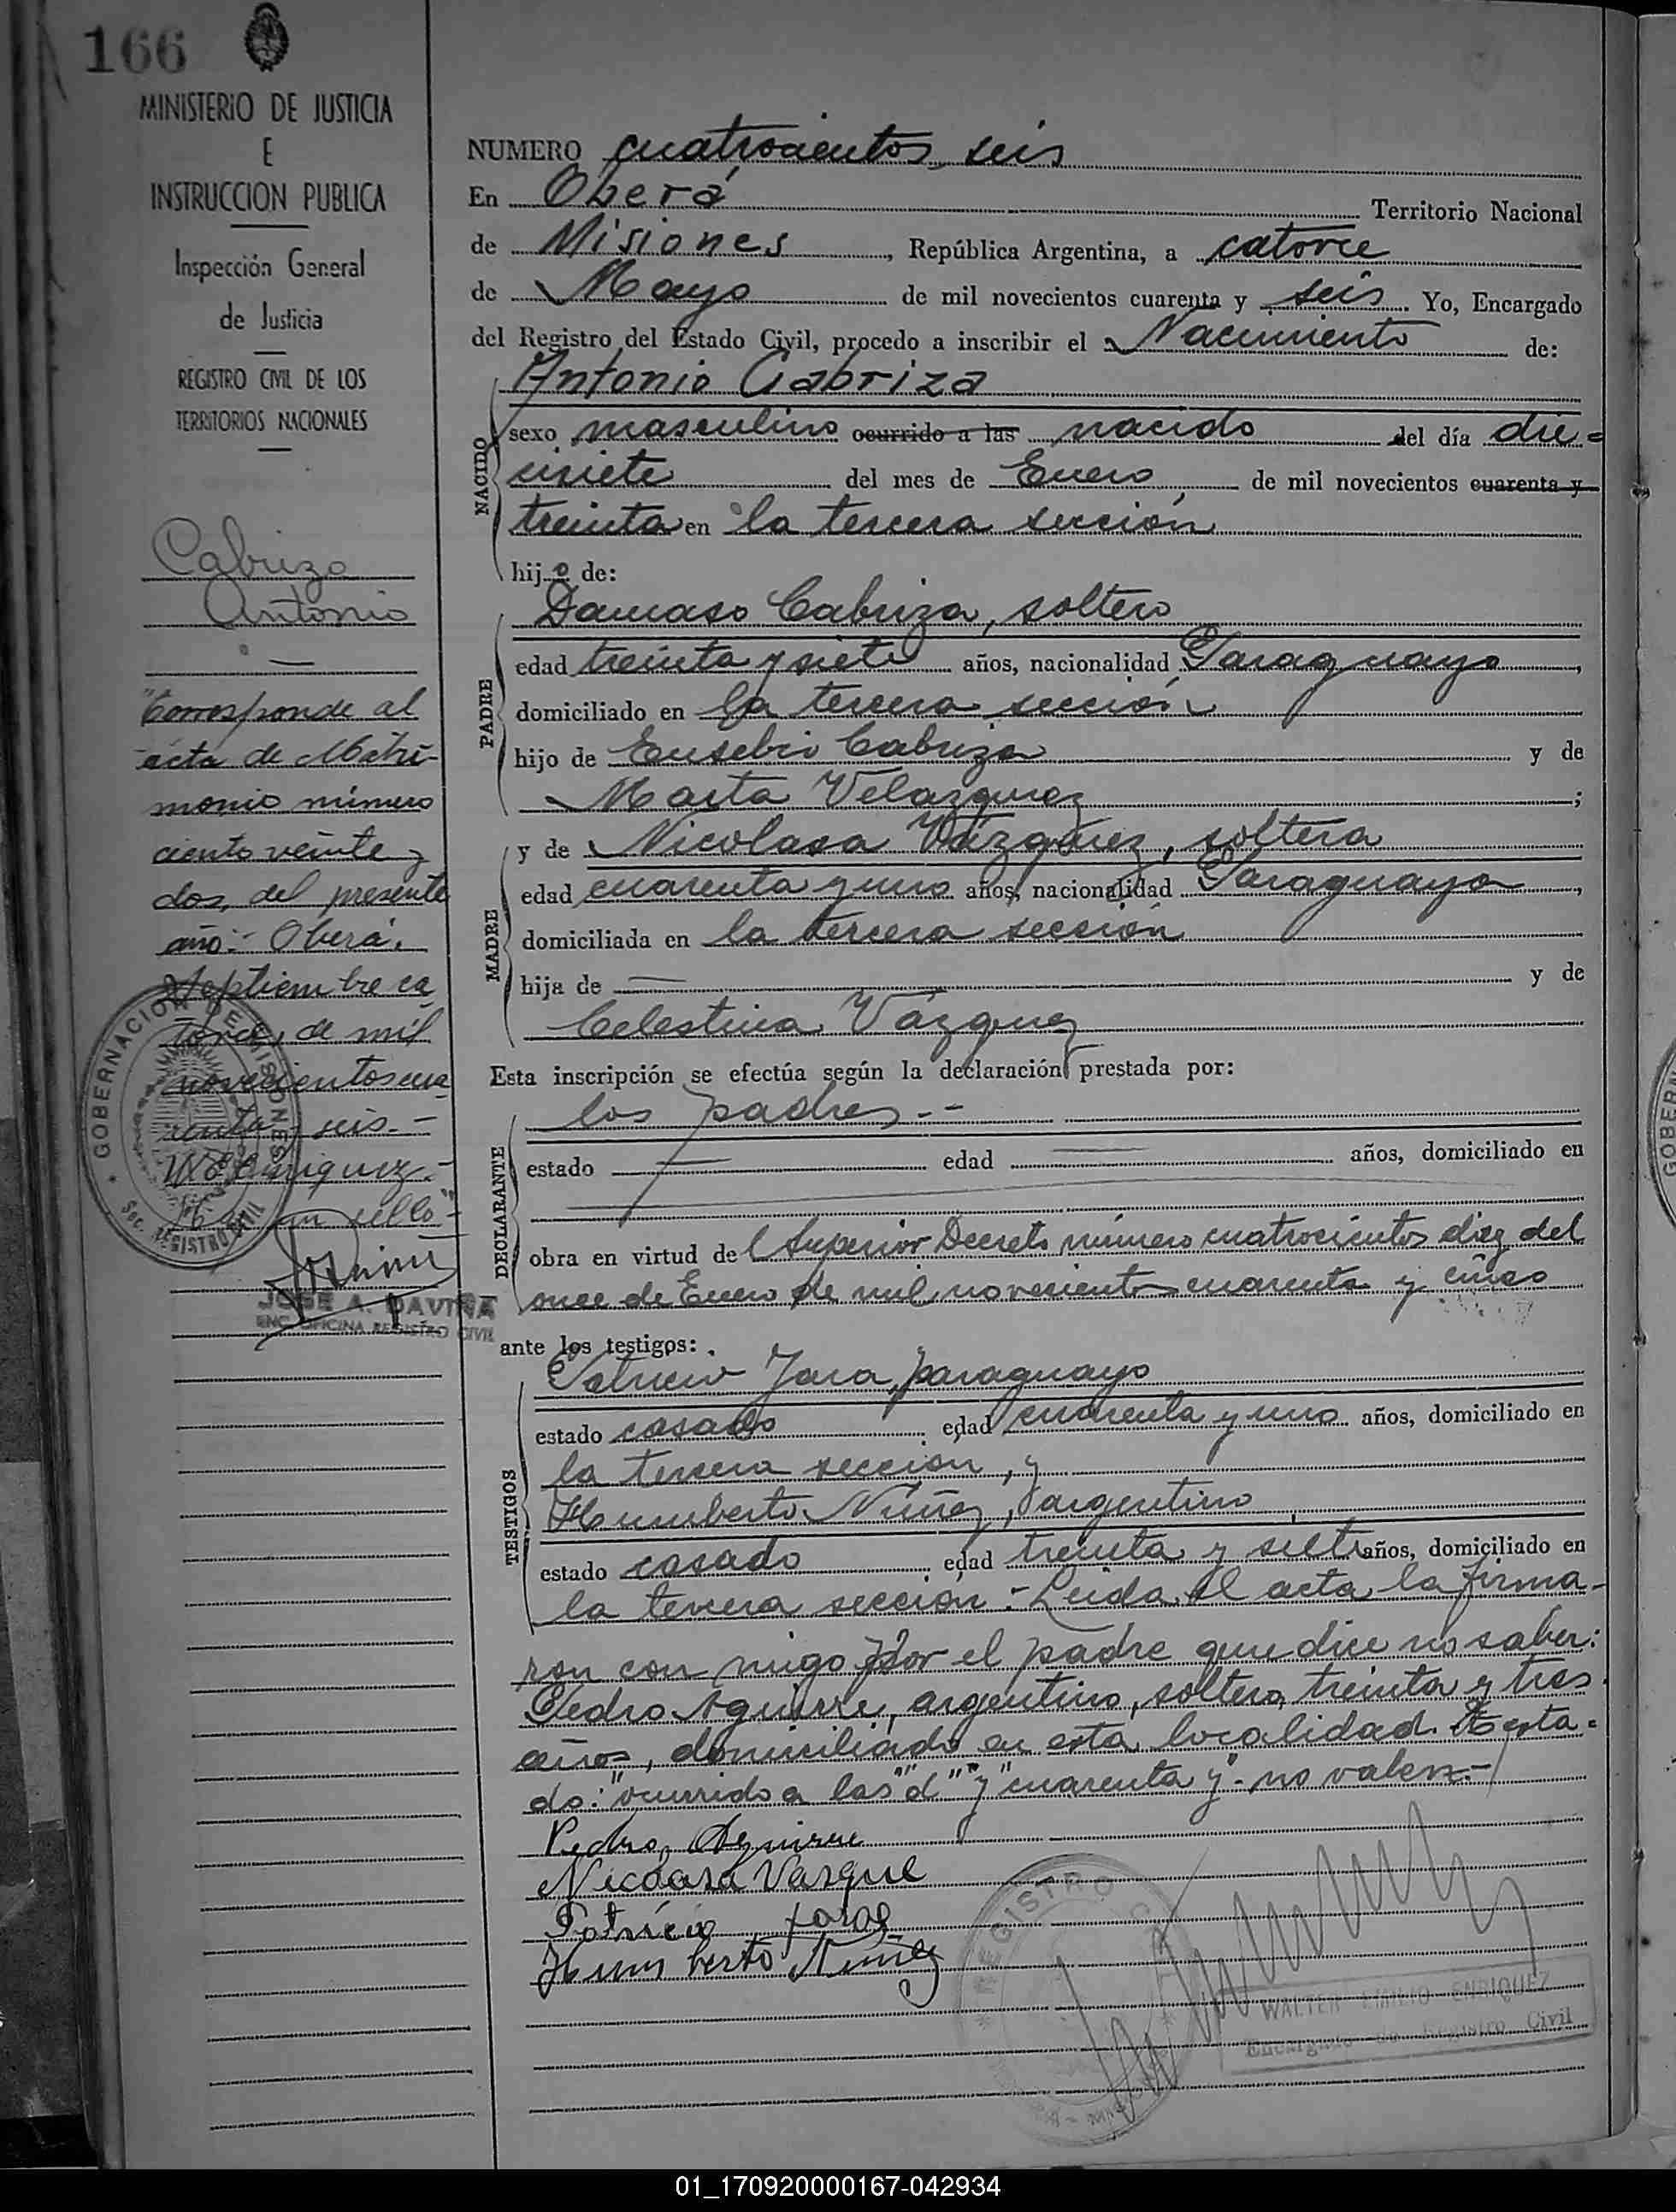 166
MINISTERIO DE JUSTICIA
E
INSTRUCCION PUBLICA
Inspección General
de Justicia
REGISTRO CIVIL DE LOS
TERRITORIOS NACIONALES
Cabriza
Antonio
"Corresponde al
acta de Matri-
monio número
ciento veinte y
dos, del presente
año.- Oberá,
Septiembre ca
torce, de mil
novecientos cua
renta y seis.-
W E Enriquez.-
sello"
GOBERNACION DE MISIONES
Sec. REGISTRO CIVIL
JOSE A. DAVIÑA
ENC. OFICINA REGISTRO CIVIL
NUMERO cuatrocientos seis
En Oberá Territorio Nacional
de Misiones, República Argentina, a catorce
de Mayo de mil novecientos cuarenta y seis. Yo, Encargado
del Registro del Estado Civil, procedo a inscribir el Nacimiento de:
NACIDO
Antonio Cabriza
sexo masculino ocurrido a las nacido del día die=
cisiete del mes de Enero de mil novecientos cuarenta y
treinta en la tercera sección
hijo de:
PADRE
Damaso Cabriza, soltero
edad treinta y siete años, nacionalidad Paraguayo,
domiciliado en la tercera sección
hijo de Eusebio Cabriza y de
Marta Velazquez;
MADRE
y de Nicolasa Vázquez, soltera
edad cuarenta y uno años, nacionalidad Paraguaya,
domiciliada en la tercera sección
hija de — y de
Celestina Vázquez
Esta inscripción se efectúa según la declaración prestada por:
DECLARANTE
los padres.--
estado — edad — años, domiciliado en
obra en virtud del Superior Decreto número cuatrocientos diez del
once de Enero de mil novecientos cuarenta y cinco
ante los testigos:
TESTIGOS
Patricio Jara, paraguayo
estado casado edad cuarenta y uno años, domiciliado en
la tercera sección, y
Humberto Núñez, argentino
estado casado edad treinta y siete años, domiciliado en
la tercera sección.- Leída el acta la firma-
ron con migo por el padre que dice no saber:
Pedro Aguirre, argentino, soltero, treinta y tres
años, domiciliado en esta localidad. Testa=
do: "ocurrido a las" "d" y "cuarenta y" no valen.-
Pedro Aguirre
Nicolasa Vasque
Patricio Jara
Humberto Núñez
REGISTRO
WALTER EMILIO ENRIQUEZ
Encargado del Registro Civil
01_170920000167-042934